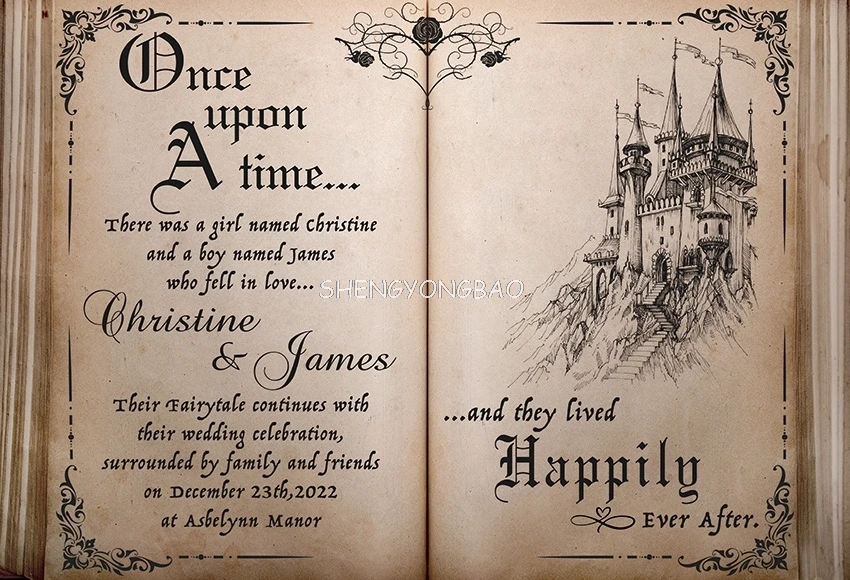 Once
upon
A time...
There was a girl named Christine
and a boy named James
who fell in love...
SHENGYONGBAO
Christine
& James
Their Fairytale continues with
their wedding celebration,
surrounded by family and friends
on December 23th,2022
at Asbelynn Manor
...and they lived
Happily
Ever After.